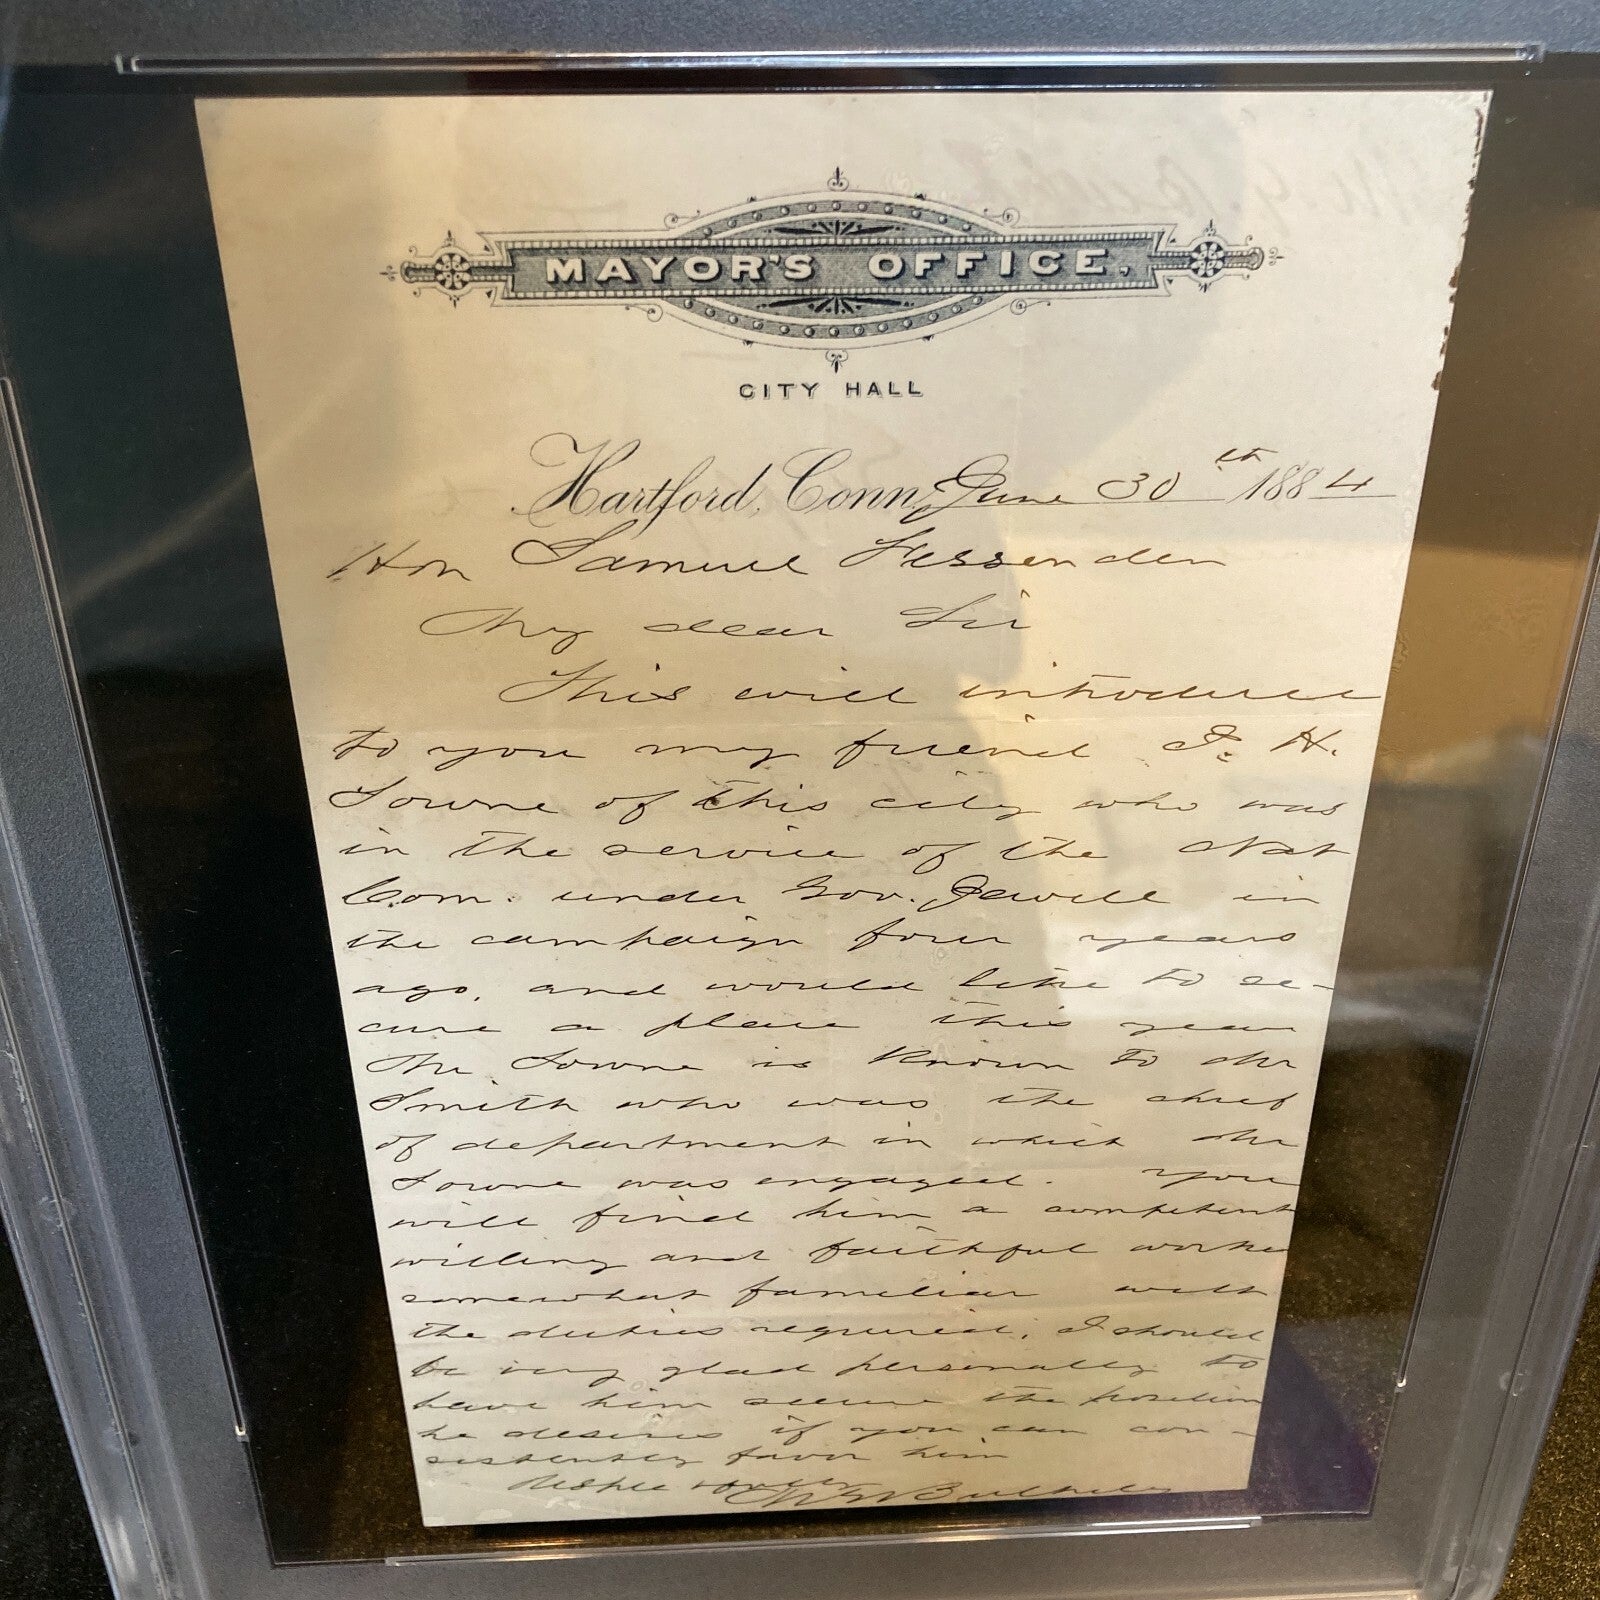 MAYOR'S OFFICE.
CITY HALL
Hartford, Conn, June 30th 1884
Hon Samuel Fessenden
My dear Sir
This will introduce
to you my friend J. H.
Towne of this city who was
in the service of the Nat
Com. under Gov. Jewell in
the campaign four years
ago, and would like to se-
cure a place this year
Mr. Towne is known to Mr
Smith who was the chief
of department in which Mr
Towne was engaged. You
will find him a competent
willing and faithful worker
somewhat familiar with
the duties required. I should
be very glad personally to
have him secure the position
he desires if you can con-
sistently favor him
Respectfully M G Bulkeley